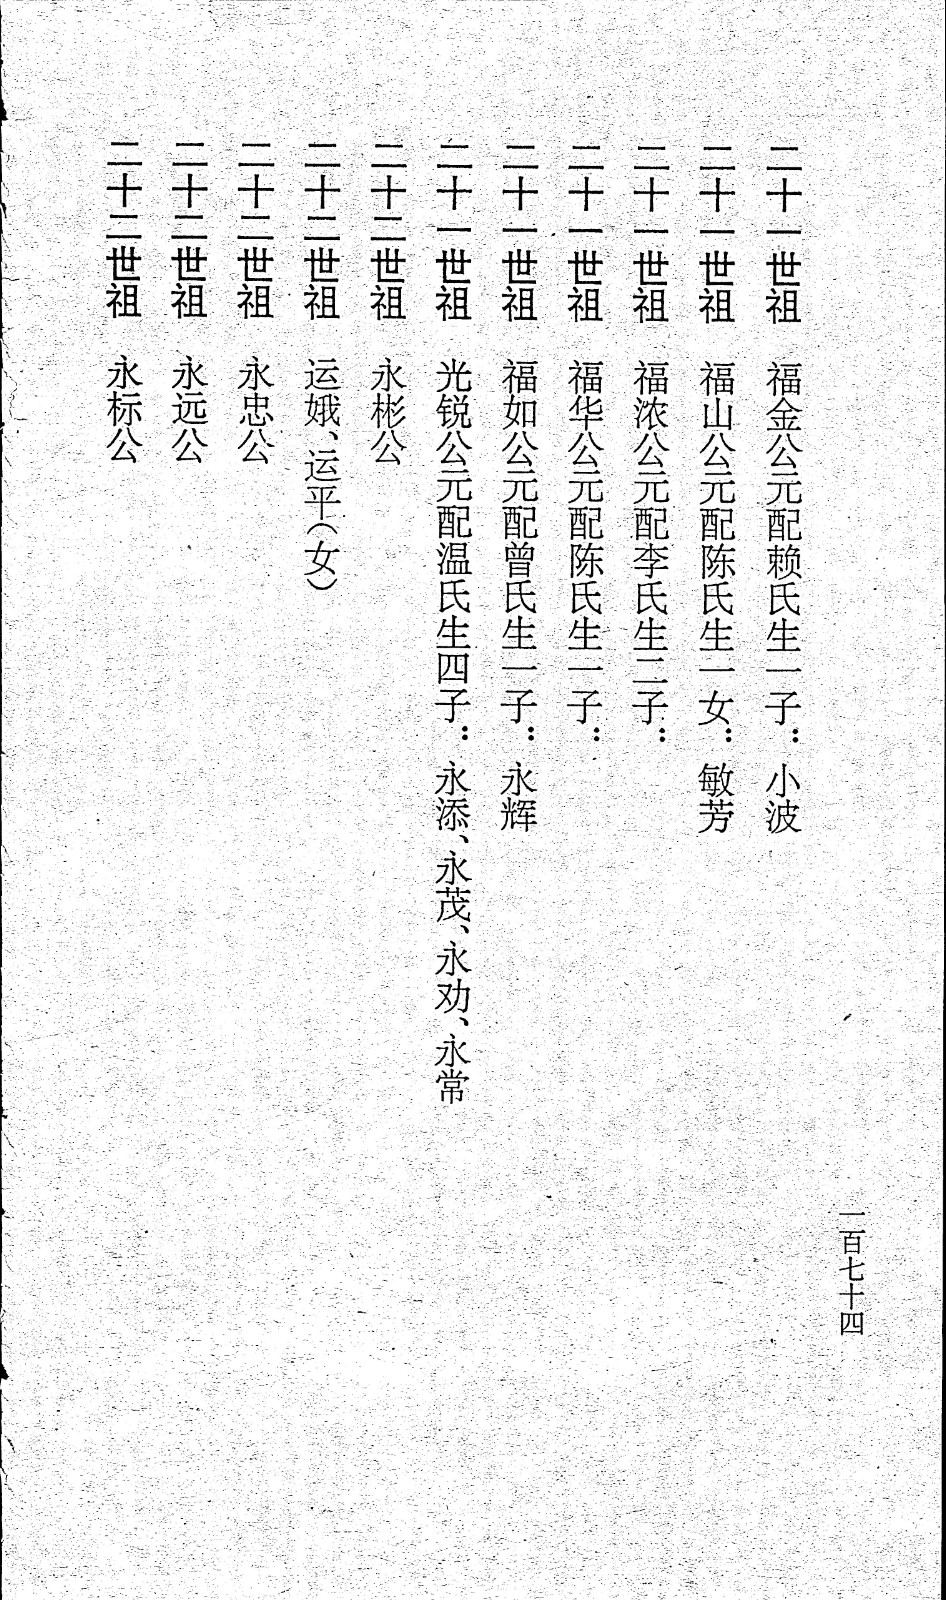 一百七十四
二十一世祖　福金公元配赖氏生一子：小波
二十一世祖　福山公元配陈氏生一女：敏芳
二十一世祖　福浓公元配李氏生二子：
二十一世祖　福华公元配陈氏生一子：
二十一世祖　福如公元配曾氏生一子：永辉
二十一世祖　光锐公元配温氏生四子：永添、永茂、永劝、永常
二十二世祖　永彬公
二十二世祖　运娥、运平（女）
二十二世祖　永忠公
二十二世祖　永远公
二十二世祖　永标公